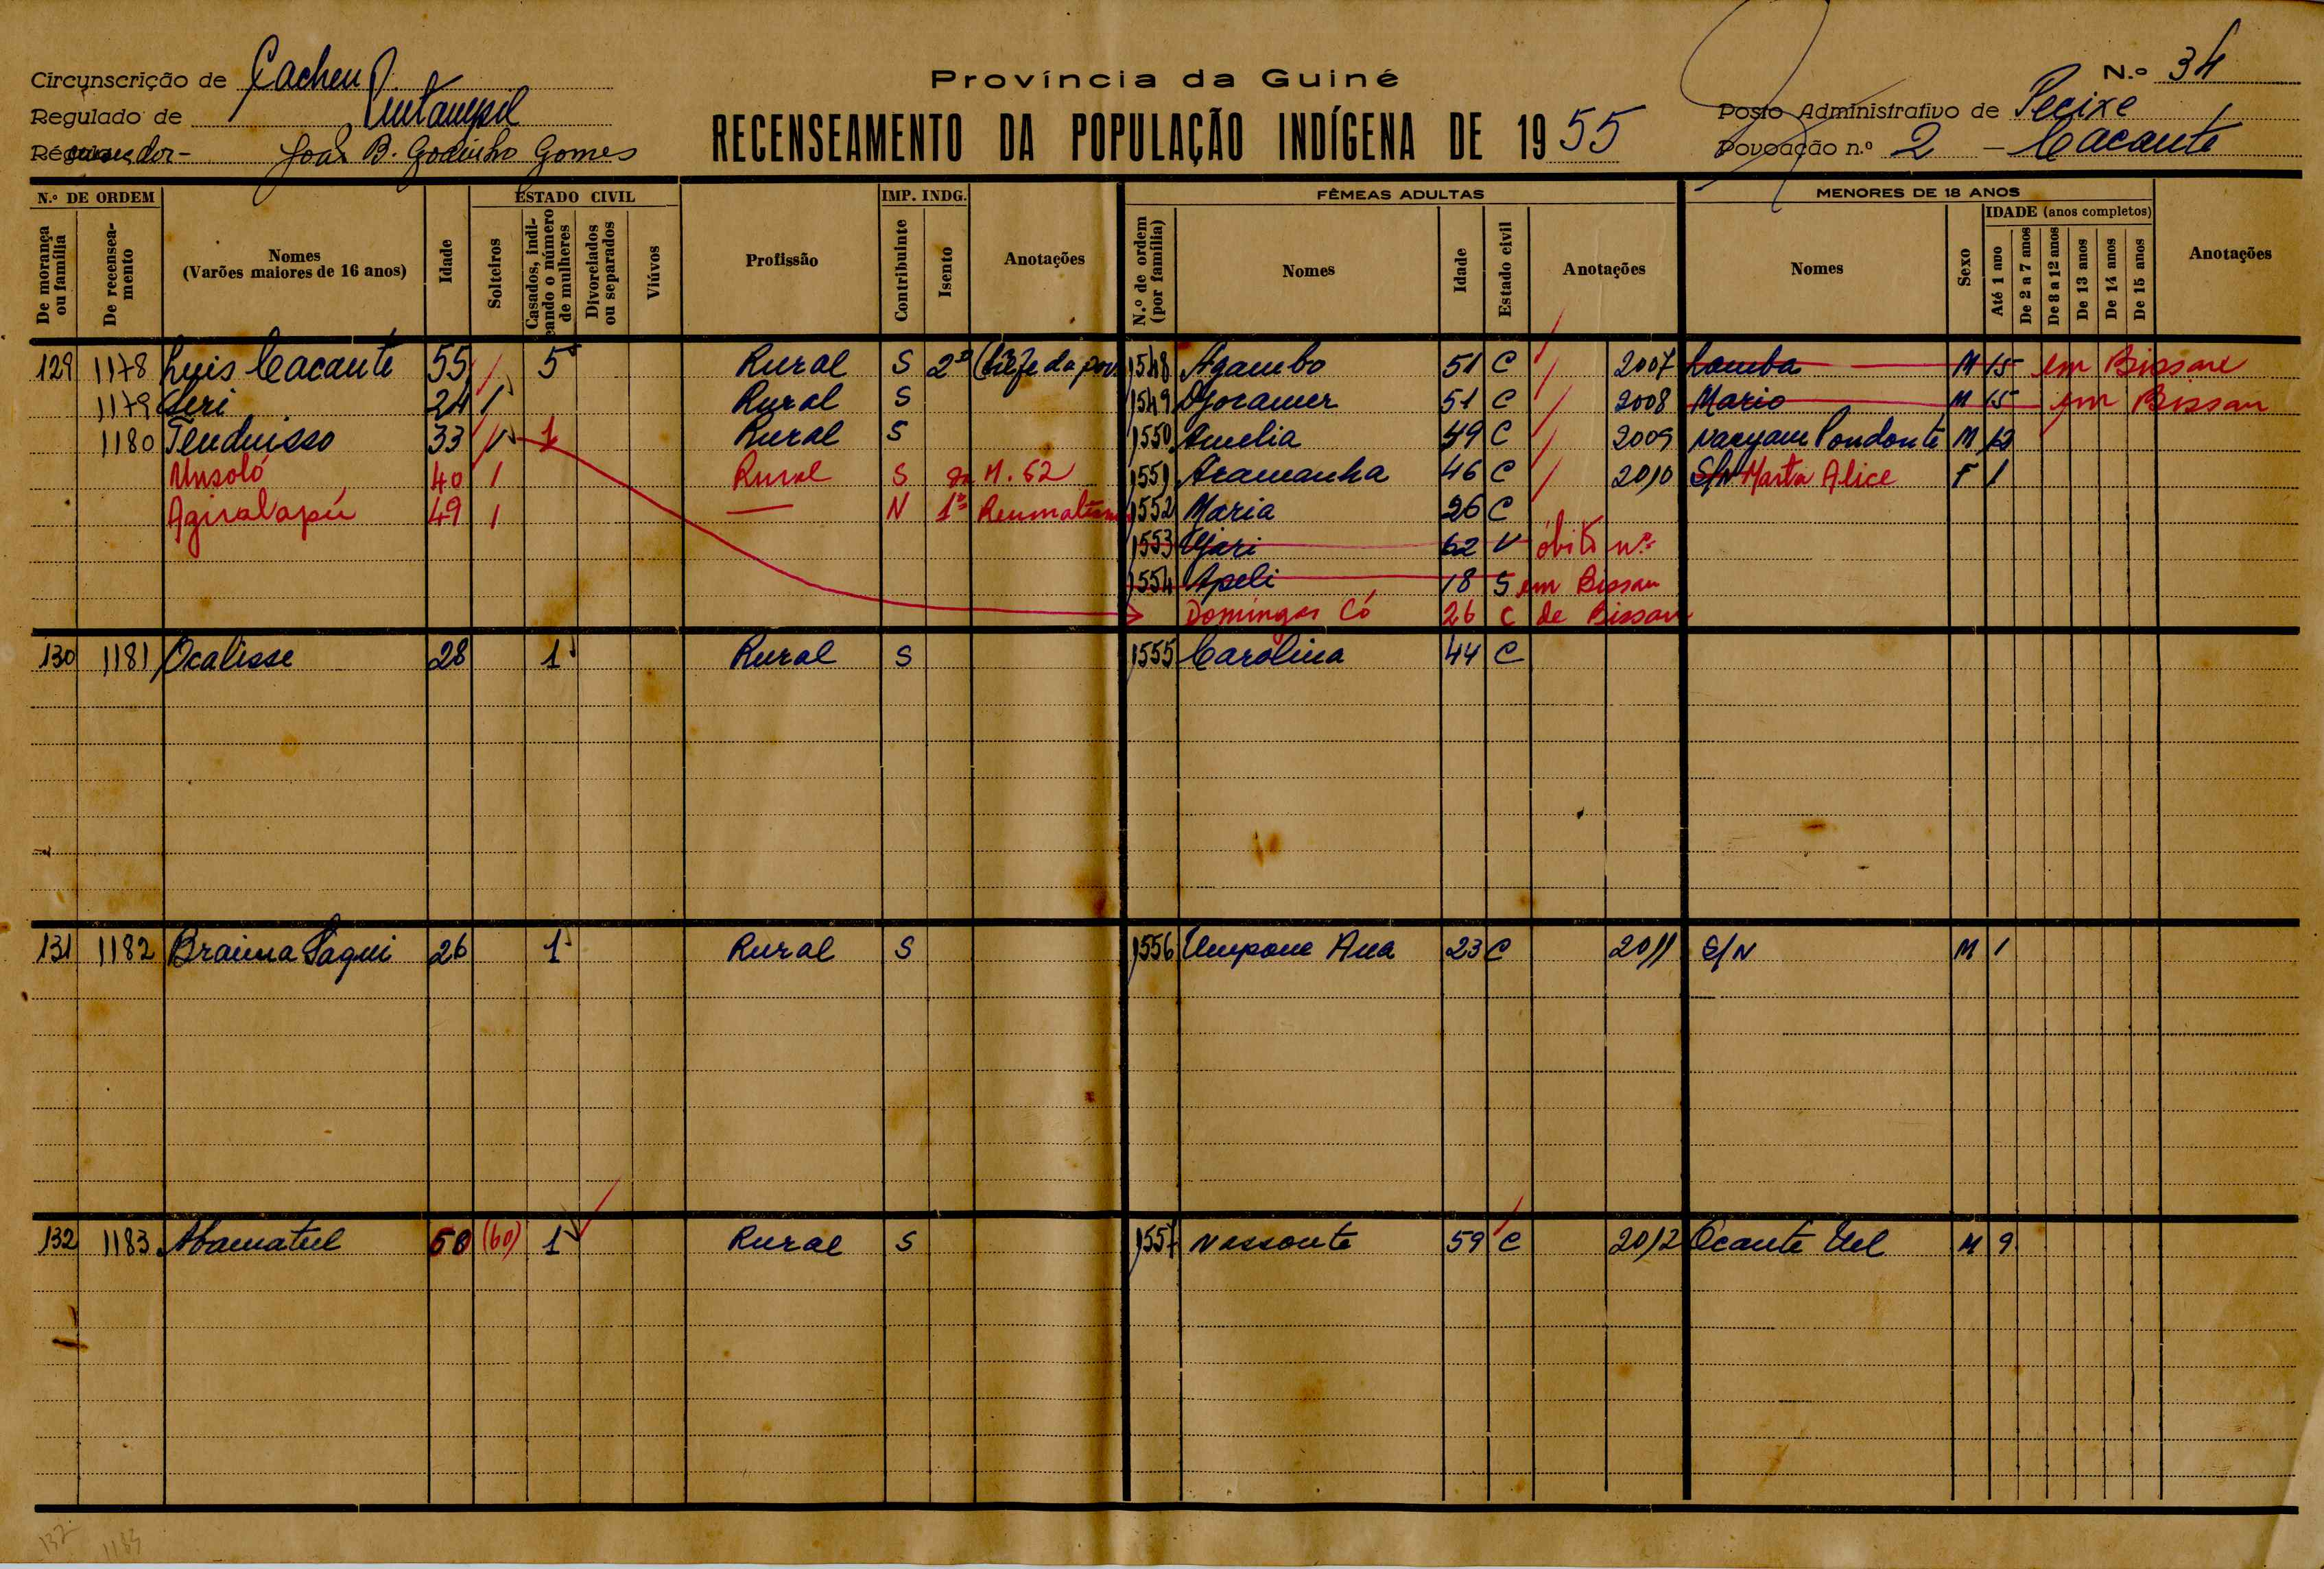 Província da Guiné
N.º 34
Circunscrição de Cacheu
Posto Administrativo de Pecixe
Regulado de
Régulo dor - João B. Godinho Gomes
RECENSEAMENTO DA POPULAÇÃO INDÍGENA DE 1955
Povoação n.º 2 - Cacante
N.º DE ORDEM
ESTADO CIVIL
IMP. INDG.
FÊMEAS ADULTAS
MENORES DE 18 ANOS
De morança ou família
De recenseamento
Nomes (Varões maiores de 16 anos)
Idade
Solteiros
Casados, indicando o número de mulheres
Divorciados ou separados
Viúvos
Profissão
Contribuinte
Isento
Anotações
N.º de ordem (por família)
Nomes
Idade
Estado civil
Anotações
Nomes
Sexo
IDADE (anos completos)
Até 1 ano
De 2 a 7 anos
De 8 a 12 anos
De 13 anos
De 14 anos
De 15 anos
Anotações
129 1178 Luis Cacante 55 5 Rural S 2º Chefe da pov. 1548 Agambo 51 C 2007 Lamba M 15 em Bissau
1179 Seri 24 1 Rural S 1549 51 C 2008 Mario M 15 em Bissau
1180 Tenduisso 33 1 1 Rural S 1550 Amelia 49 C 2009 Pondonte M 12
Unsoló 40 1 Rural S M. 52 1551 Aramanha 46 C 2010 S/N Marta Alice F 1
Agiralapú 49 1 — N 1º 1552 Maria 26 C
1553 62 V óbito nº
1554 Apeli 18 S em Bissau
Domingas Có 26 C de Bissau
130 1181 Ocalisse 28 1 Rural S 1555 Carolina 44 C
131 1182 Braima Saqui 26 1 Rural S 1556 Umpone Ana 23 C 2011 S/N M 1
132 1183 Abamatul 50 (60) 1 Rural S 1557 Nassonte 59 C 2012 Ocante Uel M 9
132 1183